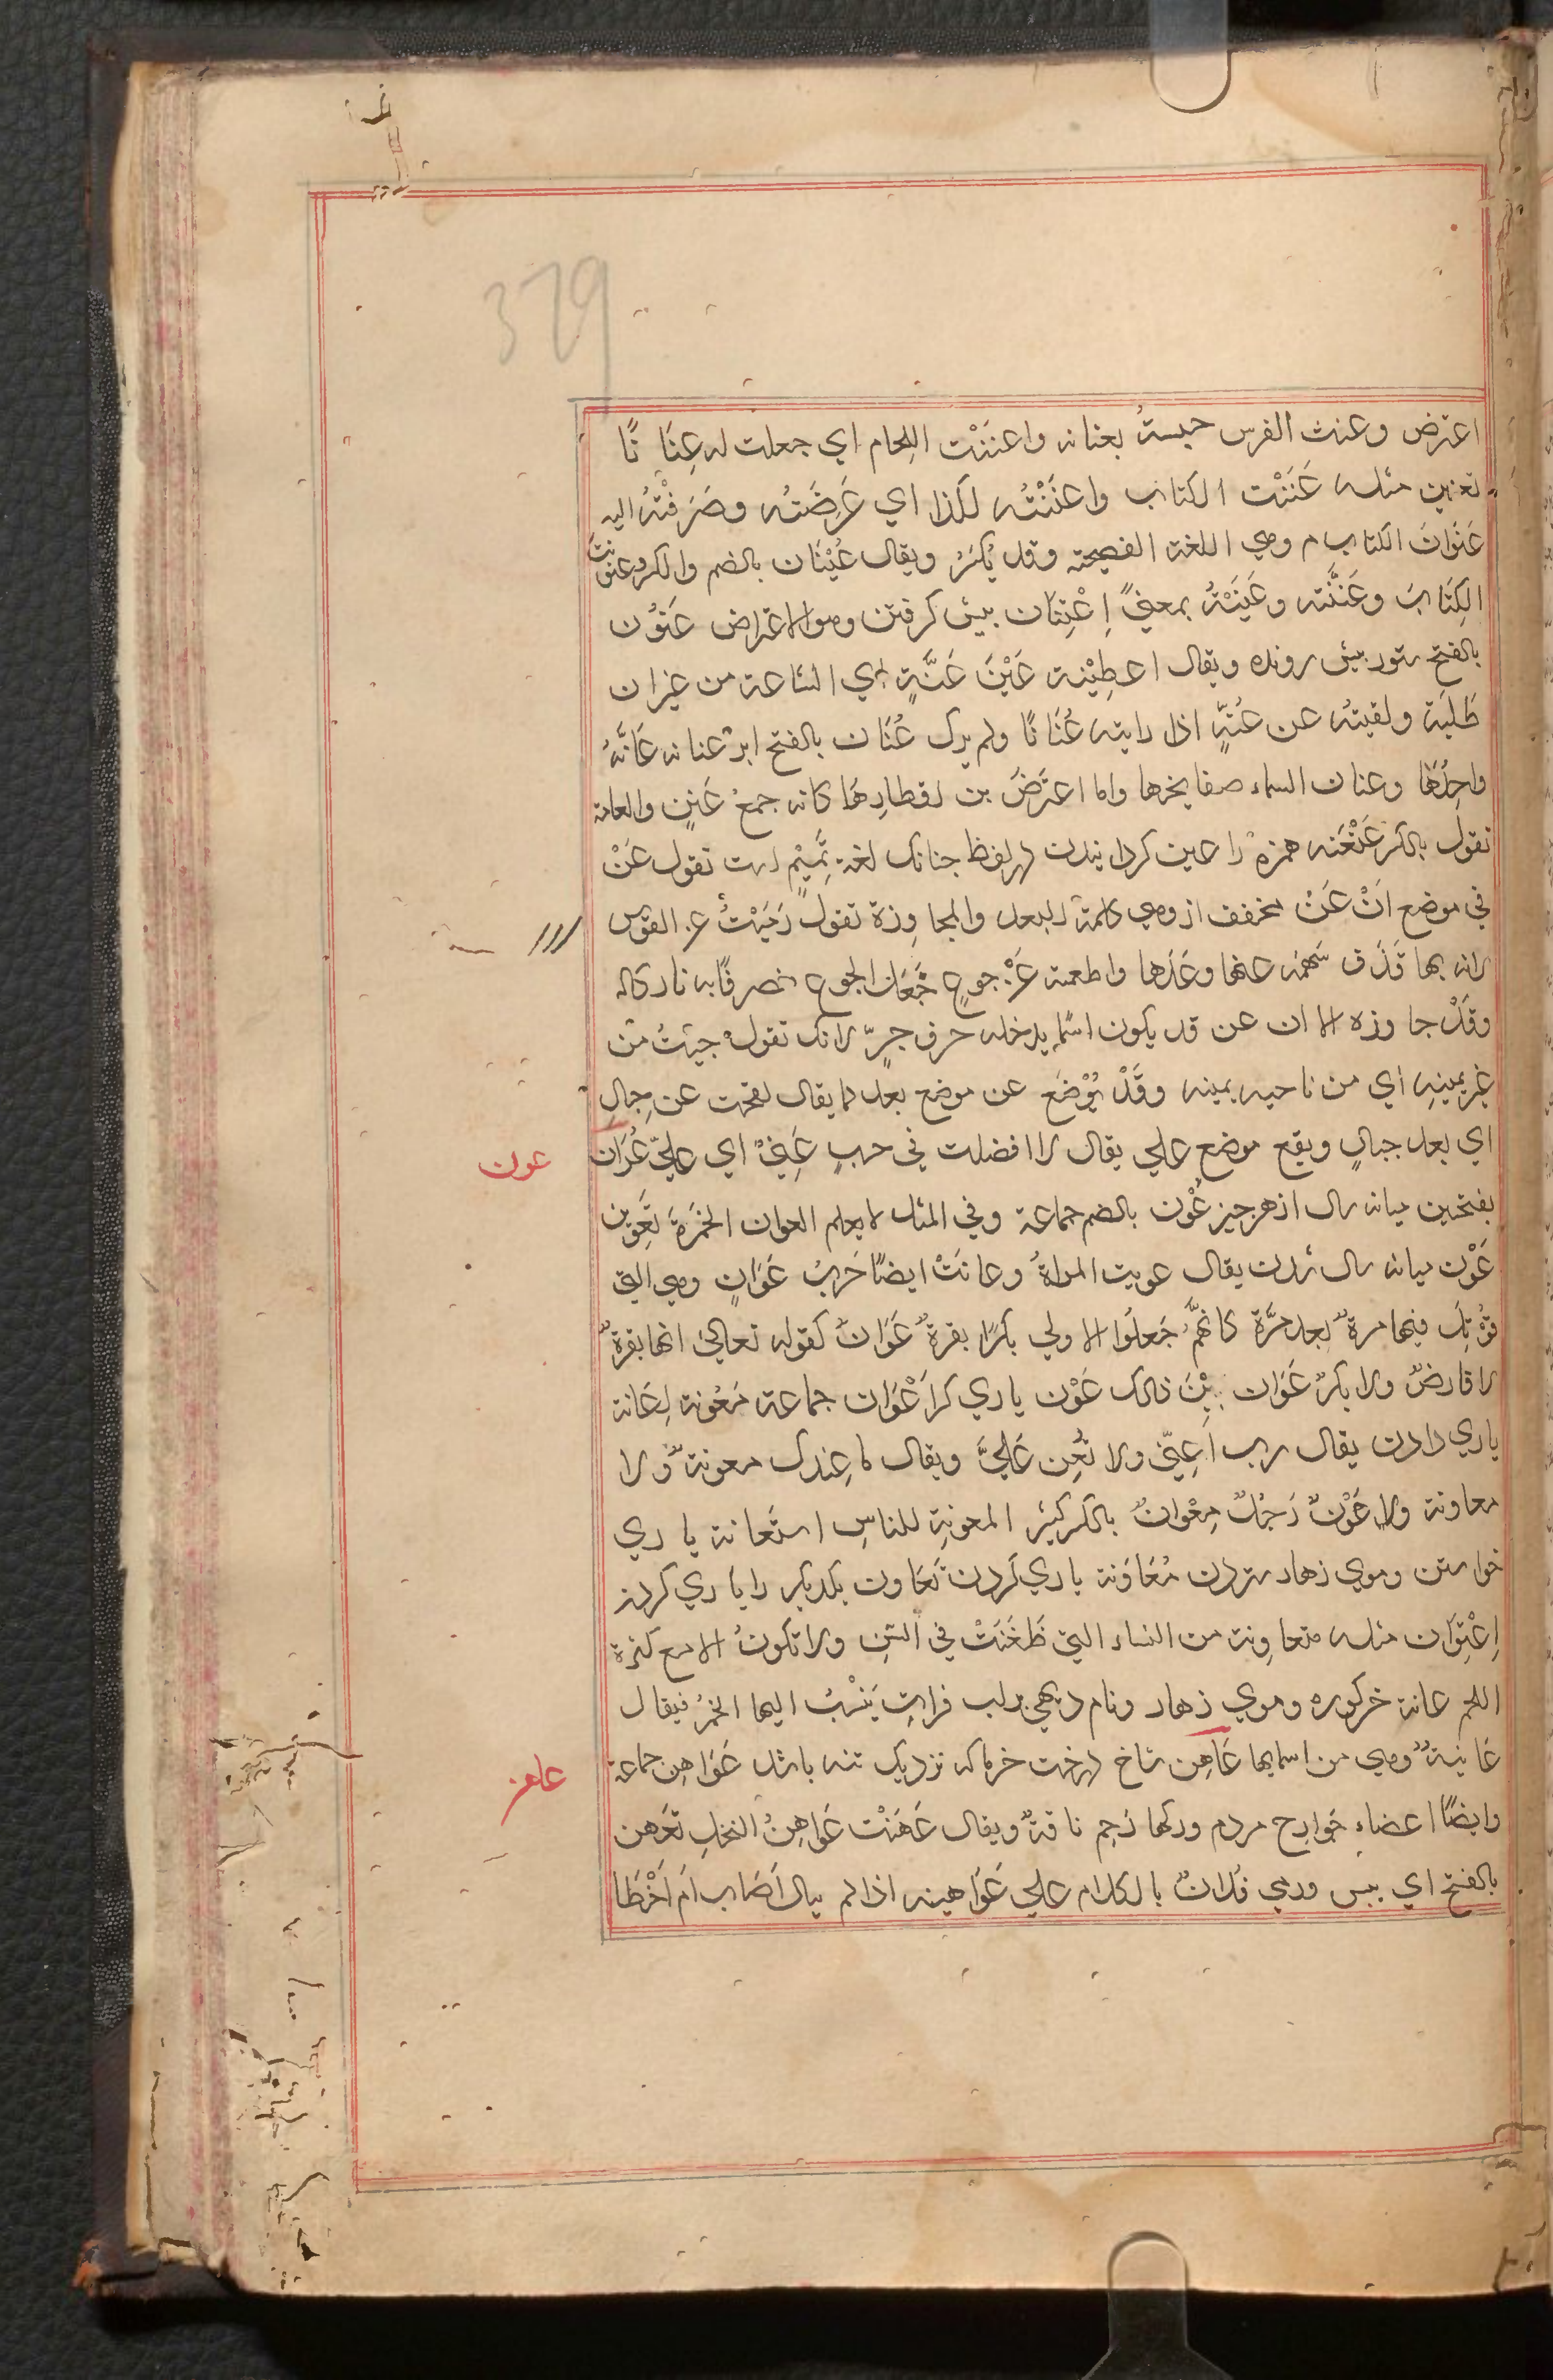 329
اعترض وعننت الفرس حبستهُ بعنانه واعنَنْت اللجام اي جعلت له عِنَا نًا
تعنين مثله عَنَنْت الكتاب واعنَنْتُه لكذا اي عَرضَتُه وصَرَفْتُه اليه
عَنَوانَ الكتاب م وهي اللغة الفصيحة وقد يُكسَرُ ويقال عُيْنَان بالضم والكسر وعنونت
الكِتَابَ وعَنَّنته وعَنَيَتْهُ بمعنيً اِعْتِنَان بيش كرفتن وهو الاعتراض عَنُون
بالفتح ستور بيش رونده ويقال اعطِيْته عَيْنَ عَنَّةٍ اي الساعة من غيران
طَلبَة ولقيتُه عن عُنَّةٍ اذا رايته عُنَانًا ولم يرك عُنَان بالفتح ابر عنانه عَانَّهُ
واحِدُهَا وعنان السماء صفايحها واما اعتَرَضَ من اقطارِهَا كانه جمعُ عَنٍن والعامة
تقول بالكسر عَنْعَنه همزه را عين كردانيدن در لفظ جنانك لغة تَمِيْمٍ است تقول عَنْ
في موضع اَنْ عَنْ مخفف از وهي كلمة البعد والمجاوزة تقول رَمَيْتُ عن القوس
لانه بها قَذَف سَهمَه عنها وعَدَها واطعمته عَنْ جوعٍ جَعَل الجوع منصرفًا به تاركاله
وقَدْ جاوزه الا ان عن قد يكون اسمًا يدخله حرف جرٍّ لانك تقول جيتُ من
عن يمينِه اي من ناحيه يمينه وقَدْ يُوْضَع عن موضع بعد كما يقال لقحت عن حِبالٍ
اي بعد حبالٍ ويقع موضع علي يقال لا افضلت في حسبٍ عَنِيّ اي عليَّ عَوَان
عون
بفتحتين ميانه سال از هر جيز عُوْن بالضم جماعة وفي المثل لا يعلم العوان الخِمْرَةَ تَعْوِين
عَوْن ميانه سال شدن يقال عونت المراةُ وعانَتْ ايضًا حَربٌ عَوَانٍ وهي التي
قُوْتِلَ فيها مرةٌ بعد مرَّة كانهمُ جَعلُوا الاولي بكرًا بقرةٌ عَوَانٌ كقوله تعالي انها بقرةٌ
لا فارضٌ ولا بكرٌ عَوَان بَيْنَ ذلك عَوْن ياري كر اَعْوَان جماعة مَعُونة اِعَانة
ياري دادن يقال رب اَعِنّي ولا تُعِن عَلَيَّ ويقال ما عِندك معونةٌ ولا
معاونة ولا عَوْنٌ رَجُلٌ مِعْوانٌ بالكسر كثير المعونةِ للناسِ استعانة ياري
خواستن وموي زهار ستردن مُعَاوَنة ياري كردن تَعَاون يكديكر را ياري كردن
اِعْتِوَان مثله متعاوِنة من النساء التي طَعَنَتْ في السِّنِ ولا تكونُ الا مع كثرة
اللحم عانة خركوره وموي زهار ونام ديهي بر لب فراتِ يَنسْبُ اليها الخمرُ فيقال
عَانِيةٌ وهي من اسمايها عَاهِن شاخ درخت خرما كه نزديك تنه باشد عَوَاهِن جماعة
عاهن
وايضًا اعضاء جَوارِح مردم وركها رَحِم ناقةٌ ويقال عَهَنْت عَواهِنُ النخلِ تعَهن
بالفتح اي يبس ورمي فلانٌ بالكلام علي عَوَاهينه اذا لم يبال اَصَاب اَم اَخْطَا